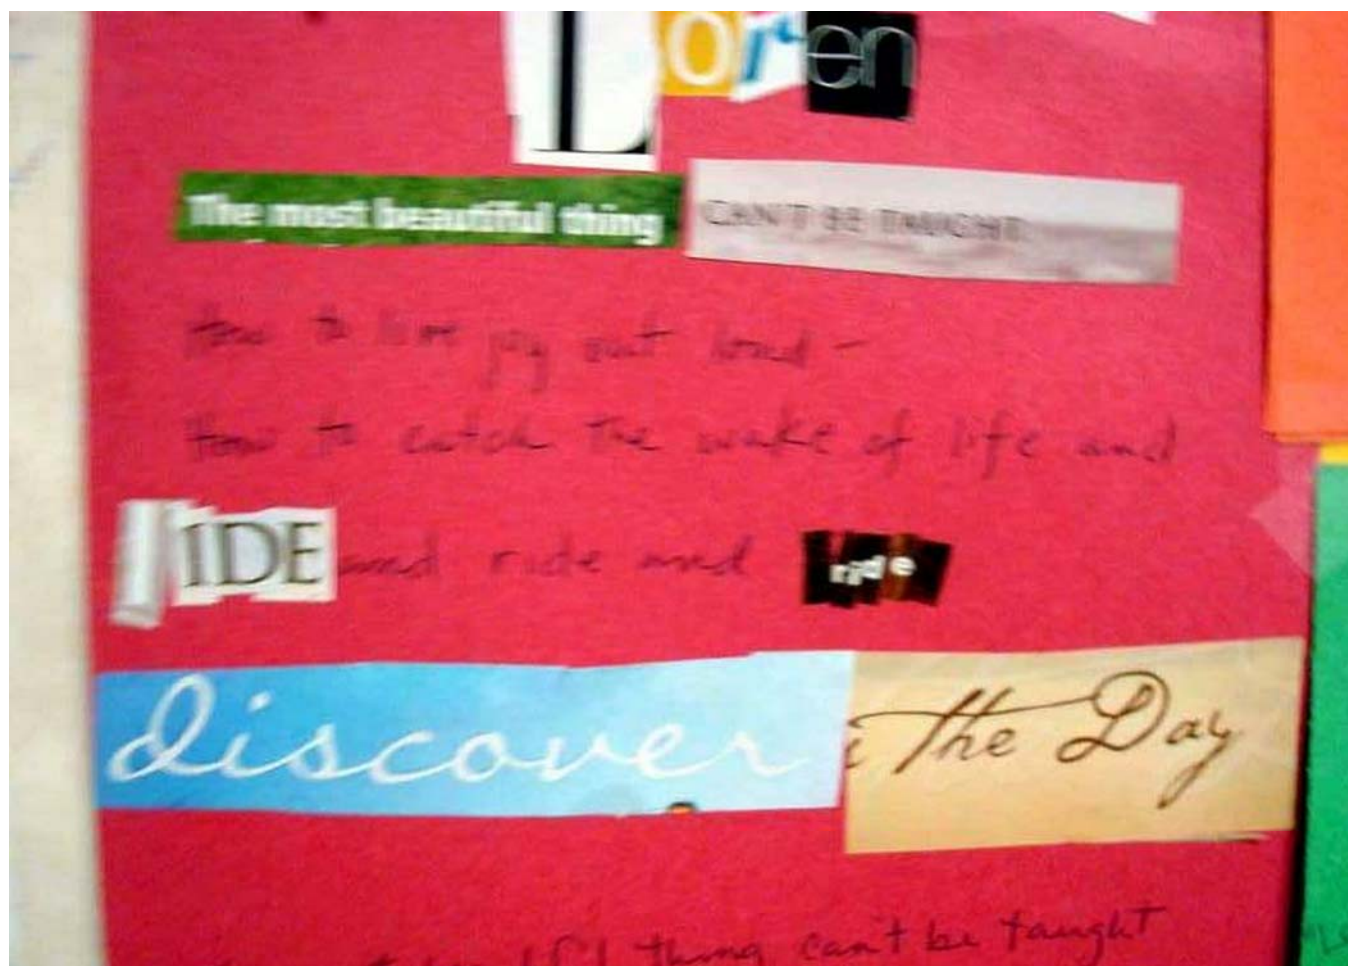 Loren
The most beautiful thing CAN'T BE TAUGHT
How to live joy out loud -
How to catch the wake of life and
RIDE and ride and ride
discover the Day
thing can't be taught